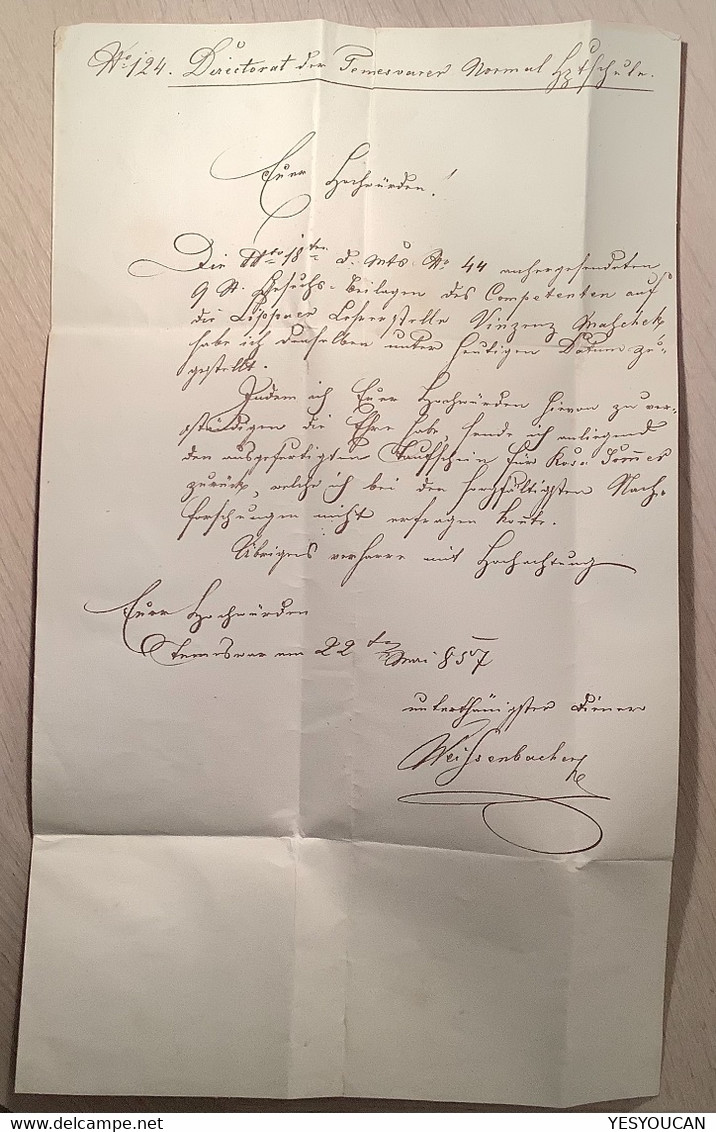 No 124. Directorat der Temesvarer Normal Hptschule.
Euer Hochwürden!
Die dto 18ten d. Mts No 44 anhergesendeten
9 St. Gesuchs-Beilagen des Competenten auf
die Lippaer Lehrerstelle Vinzenz Maschek
habe ich demselben unter heutigen Datum zu-
gestellt.
Indem ich Euer Hochwürden hievon zu ver-
ständigen die Ehre habe, sende ich anliegend
den ausgefertigten Taufschein für Rosa
zurück, welche ich bei den sorgfältigsten Nach-
forschungen nicht erfragen konte.
Übrigens verharre mit Hochachtung
Euer Hochwürden
Temesvar am 22ten Mai 857
unterthänigster Diener
Weissenbacher
YESYOUCAN